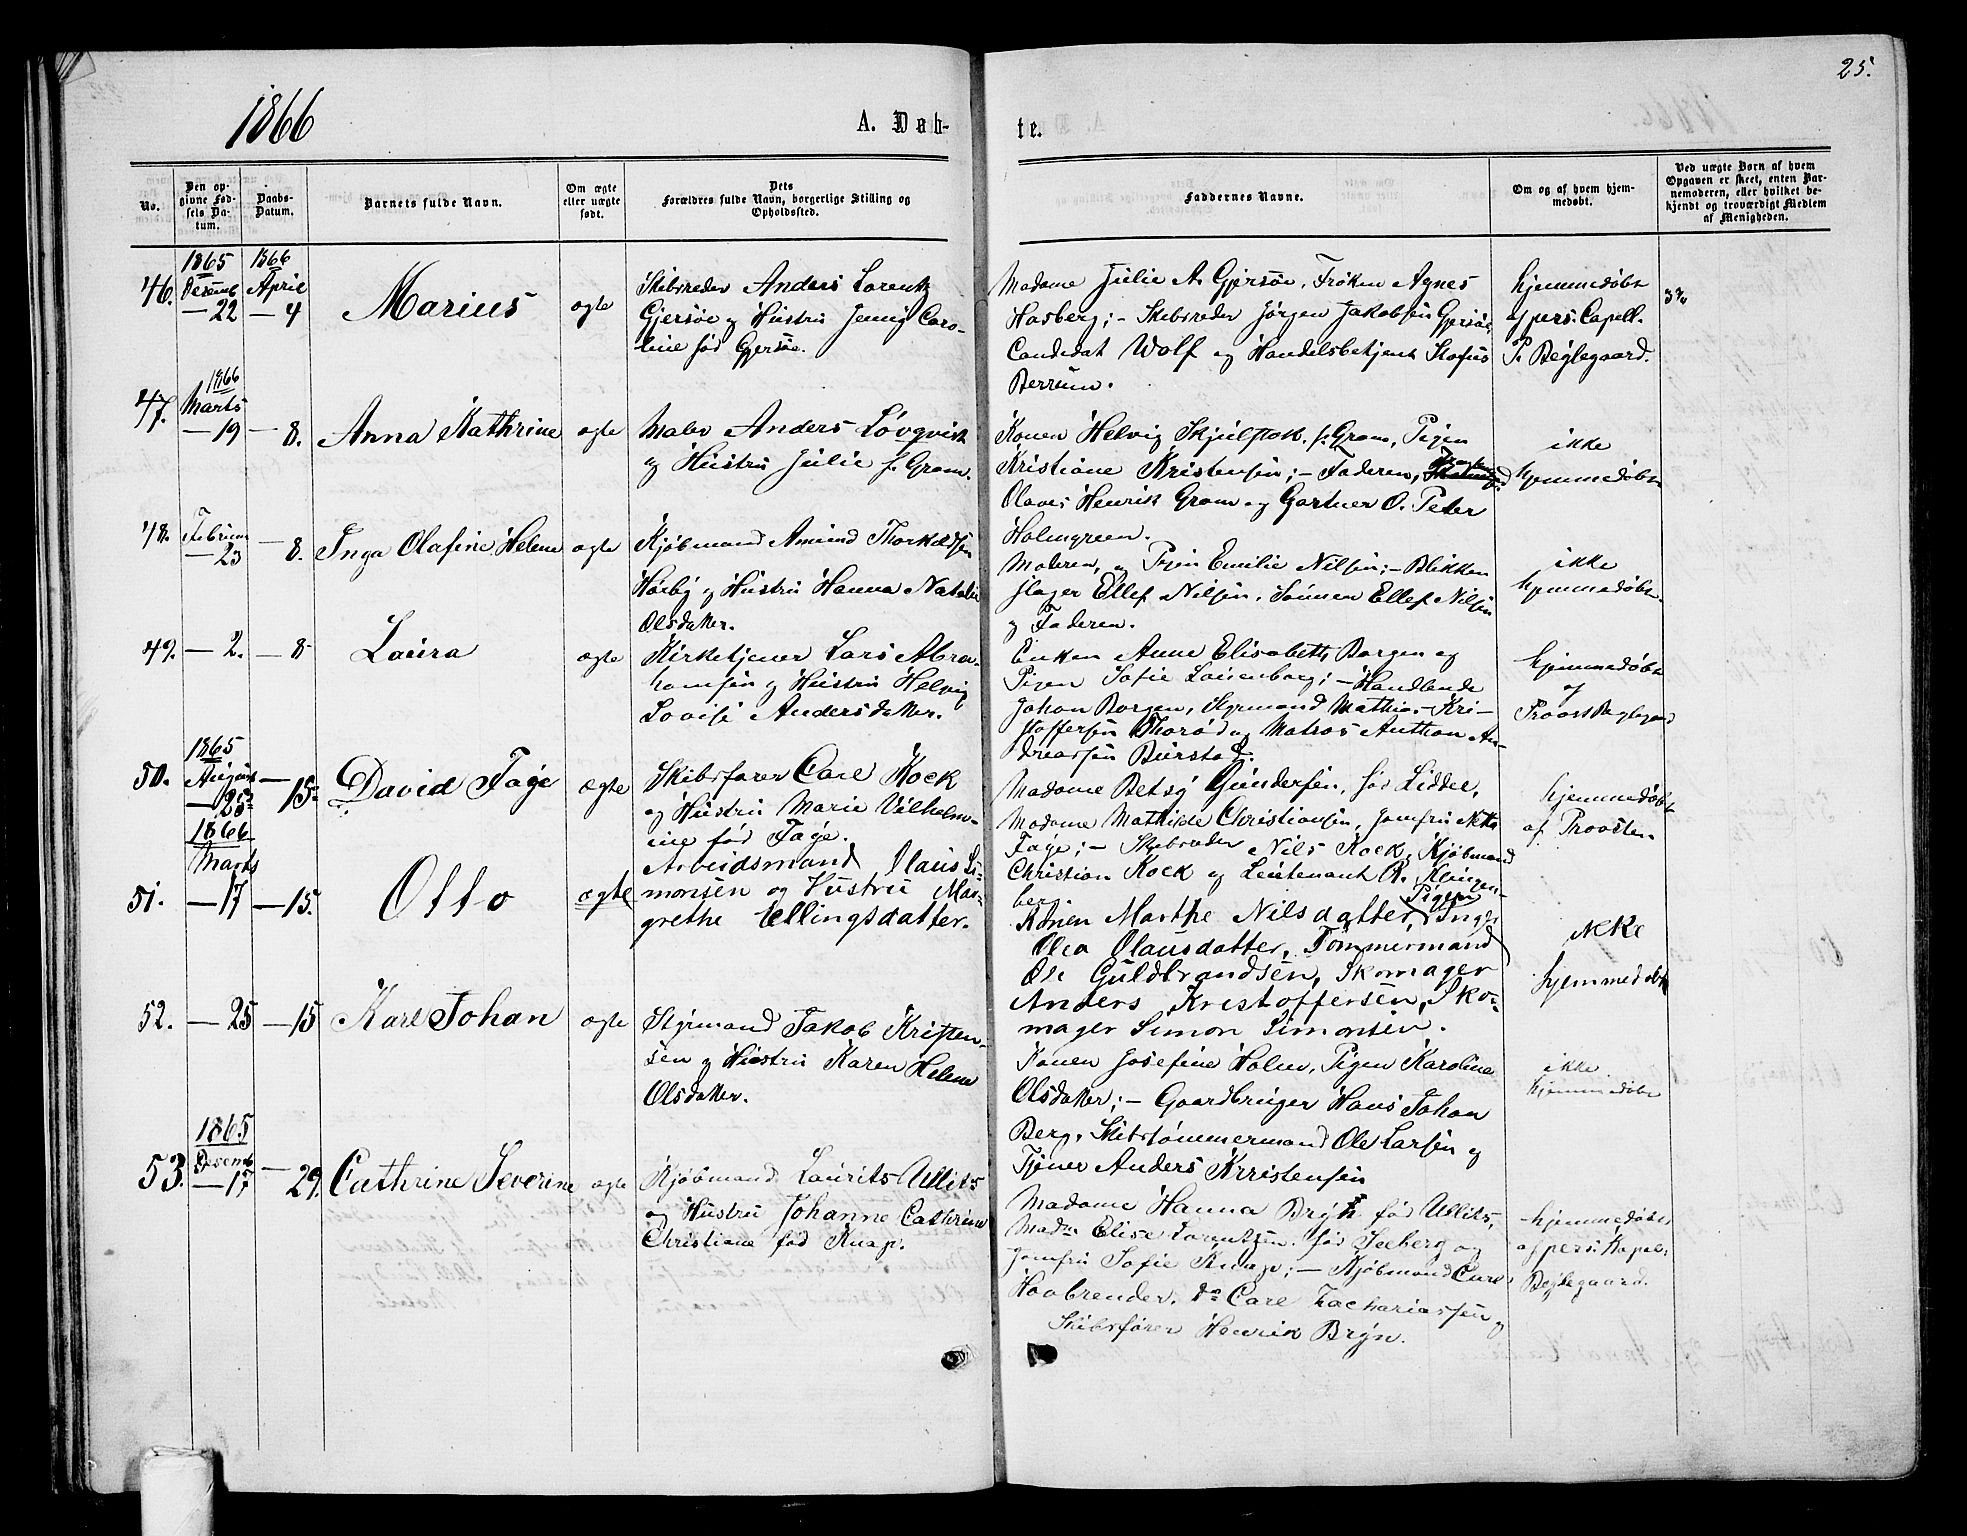 25.
1866
A. Døb-
te.
No.
Den op-
givne Fød-
sels Da-
tum.
Daabs-
Datum.
Barnets fulde Navn.
Om ægte
eller uægte
født.
Dets
Forældres fulde Navn, borgerlige Stilling og
Opholdssted.
Faddernes Navne.
Om og af hvem hjem-
medøbt.
Ved uægte Børn af hvem
Opgaven er skeet, enten Bar-
nemoderen, eller hvilket be-
kjendt og troværdigt Medlem
af Menigheden.
46.
1865
Desemb
— 22
1866
April
— 4
Marius
ægte
Skibsreder Anders Lorentz
Gjersøe og Hustru Jenny Caro-
line fød Gjersøe.
Madame Julie A. Gjersøe, Frøken Agnes
Hasberg; — Skibsreder Jörgen Jakobsen Gjersøe,
Candidat Wolf og Handelsbetjent Stofus
Berrum.
hjemmedøbt
af pers. Capell.
P. Bejlegaard.
47.
1866
Marts
— 19
— 8.
Anna Kathrine
ægte
Maler Anders Lövqvist
og Hustru Julie f. Gram.
Konen Helvig Skjulstok f. Gram, Pigen
Kristiane Kristensen; — Faderen,
Olaves Henrik Gram og Gartner O. Peter
Holmgreen.
ikke
hjemmedøbt
48.
Februar
— 23
— 8.
Inga Olafine Helene
ægte
Kjøbmand Amund Thorkildsen
Høiby og Hustru Hanna Natalie
Olsdatter.
Moderen, og Pigen Emilie Nilsen; — Blikken
slager Ellef Nilsen, Sønnen Ellef Nilsen
og Faderen.
ikke
hjemmedøbt.
49.
— 2.
— 8
Laura
ægte
Kirketjener Lars Abra-
hamsen og Hustru Helvig
Lovise Andersdatter.
Enken Anne Elisabeth Borgen og
Pigen Sofie Lauenborg; — Handlende
Johan Borgen, Styrmand Mathias Kri-
stoffersen Thorød og Matros Anthon An-
dreassen Bürstad.
hjemmedøbt
af
Provst Bejlegaard
50.
1865
August
— 25
— 15
David Faye
ægte
Skibsfører Carl Kock
og Hustru Marie Vilhelm-
ine fød Faye.
Madame Betsy Gundersen, fød Liddel,
Madame Mathilde Christiansen, Jomfru Netta
Faye; — Skibsreder Nils Kock, Kjøbmand
Christian Kock og Leutenant R. Klingen-
berg.
hjemmedøbt
af Provsten
51.
1866
Marts
— 17
— 15.
Otto
ægte
Arbeidsmand Olaus Si-
monsen og Hustru Mar-
grethe Ellingsdatter.
Konen Marthe Nilsdatter, Pigen Inger
Olea Olausdatter, Tømmermand
Ole Guldbrandsen, Skomager
Anders Kristoffersen, Sko-
mager Simon Simonsen.
ikke
hjemmedøbt
52.
— 25
— 15
Karl Johan
ægte
Styrmand Jakob Kristen-
sen og Hustru Karen Helene
Olsdatter.
Konen Josefine Holm, Pigen Karoline
Olsdatter; — Gaardbruger Hans Johan
Berg, Skibstømmermand Ole Larsen og
Tjener Anders Kristensen
ikke
hjemmedøbt
53.
1865
Desemb
— 17
— 29.
Cathrine Severine
ægte
Kjøbmand Laurits Ullits
og Hustru Johanne Cathrine
Christiane fød Knap.
Madame Hanna Bryn fød Ullits,
Madm Elise Lorentzen fød Seeberg og
Jomfru Sofie Knap; — Kjøbmand Carl
Haabrender, Do Carl Zachariassen og
Skibsfører Henrik Bryn.
hjemmedøbt
af pers: Kapel:
Bejlegaard.